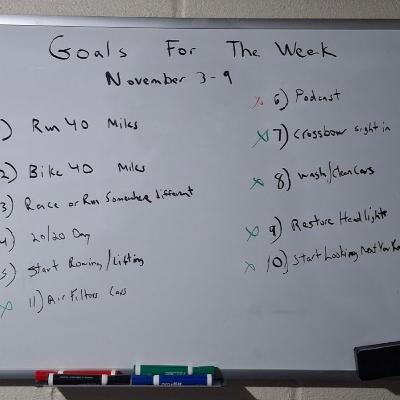 Goals For The Week
November 3-9
1) Run 40 Miles
2) Bike 40 Miles
3) Race or Run Somewhere different
4) 20/20 Day
5) Start Rowing/Lifting
x 11) Air Filters Cars
x 6) Podcast
x 7) Crossbow sight in
x 8) wash/clean cars
x 9) Restore Headlights
x 10) Start Looking Next